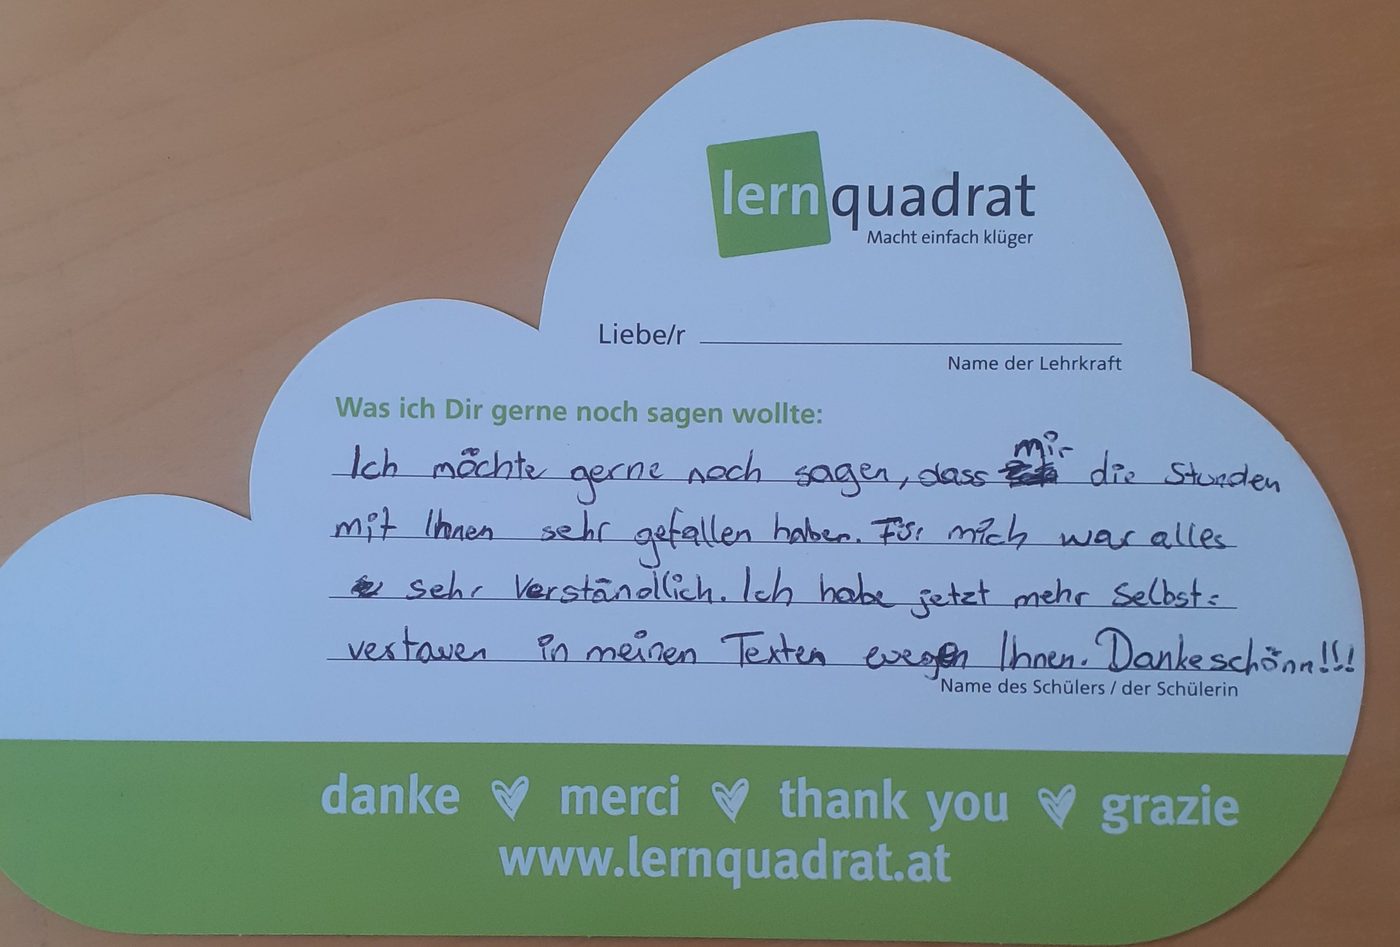 lernquadrat
Macht einfach klüger
Liebe/r
Name der Lehrkraft
Was ich Dir gerne noch sagen wollte:
Ich möchte gerne noch sagen, dass mir die Stunden
mit Ihnen sehr gefallen haben. Für mich war alles
sehr verständlich. Ich habe jetzt mehr Selbst-
vertauen in meinen Texten wegen Ihnen. Dankeschönn!!!
Name des Schülers / der Schülerin
danke merci thank you grazie
www.lernquadrat.at